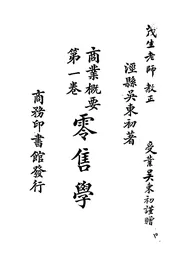 茂生老師 教正
受業吳東初謹贈
涇縣吳東初著
商業概要
第一卷
零售學
商務印書館發行